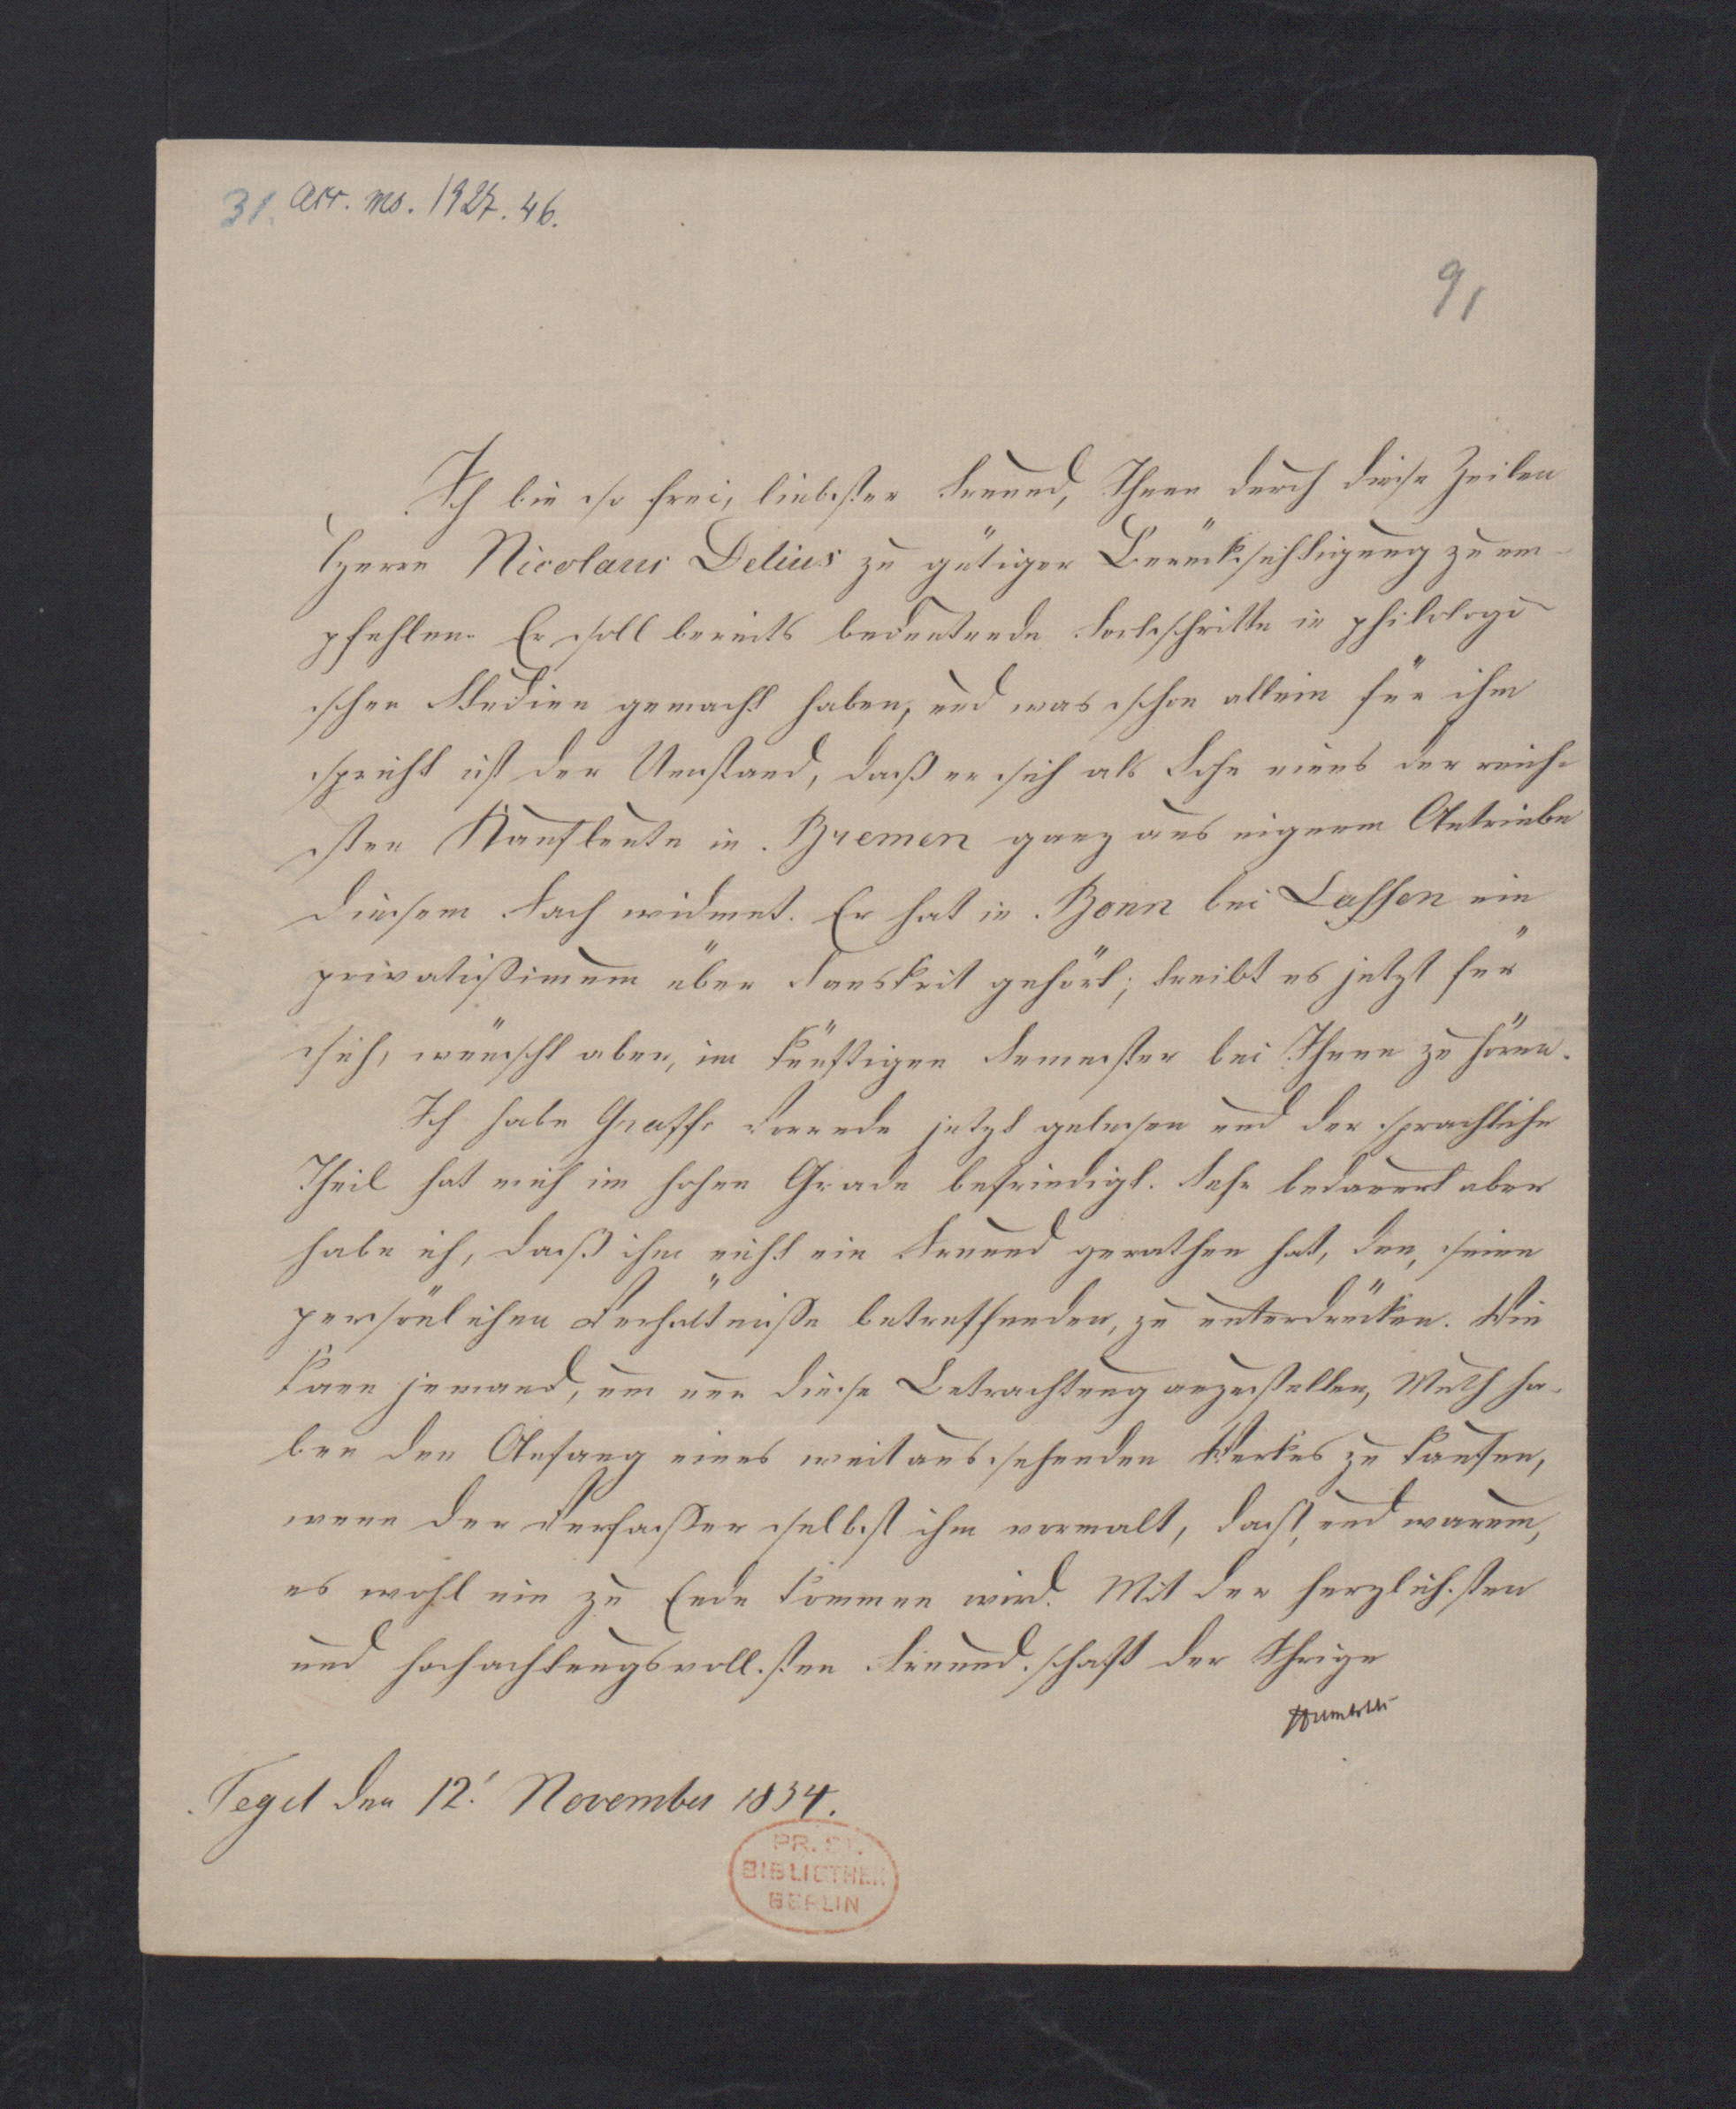 31. acc. ms. 1927. 46.
91
Ich bin so frei, liebster Freund, Ihnen durch diese Zeilen
Herrn Nicolaus Delius zu gütiger Berücksichtigung zu em-
pfehlen. Er soll bereits bedeutende Fortschritte in philologi-
schen Studien gemacht haben, und was schon allein für ihn
spricht ist der Umstand, daß er sich als Sohn eines der reich-
sten Kaufleute in Bremen ganz aus eignem Antriebe
diesem Fach widmet. Er hat in Bonn bei Lassen ein
privatissimum über Sanskrit gehört; treibt es jetzt für
sich, wünscht aber, im künftigen Semester bei Ihnen zu hören.
Ich habe Graffs Vorrede jetzt gelesen und der sprachliche
Theil hat mich im hohen Grade befriedigt. Sehr bedauert aber
habe ich, daß ihm nicht ein Freund gerathen hat, den, seine
persönlichen Verhältnisse betreffenden, zu unterdrücken. Wie
kann jemand, um nur diese Betrachtung anzustellen, Muth ha-
ben den Anfang eines weitaussehenden Werkes zu kaufen,
wenn der Verfasser selbst ihm vormalt, daß, und warum,
es wohl nie zu Ende kommen wird. Mit der herzlichsten
und hochachtungsvollsten Freundschaft der Ihrige
Humboldt
Tegel den 12. November 1834.
PR. ST.
BIBLIOTHEK
BERLIN